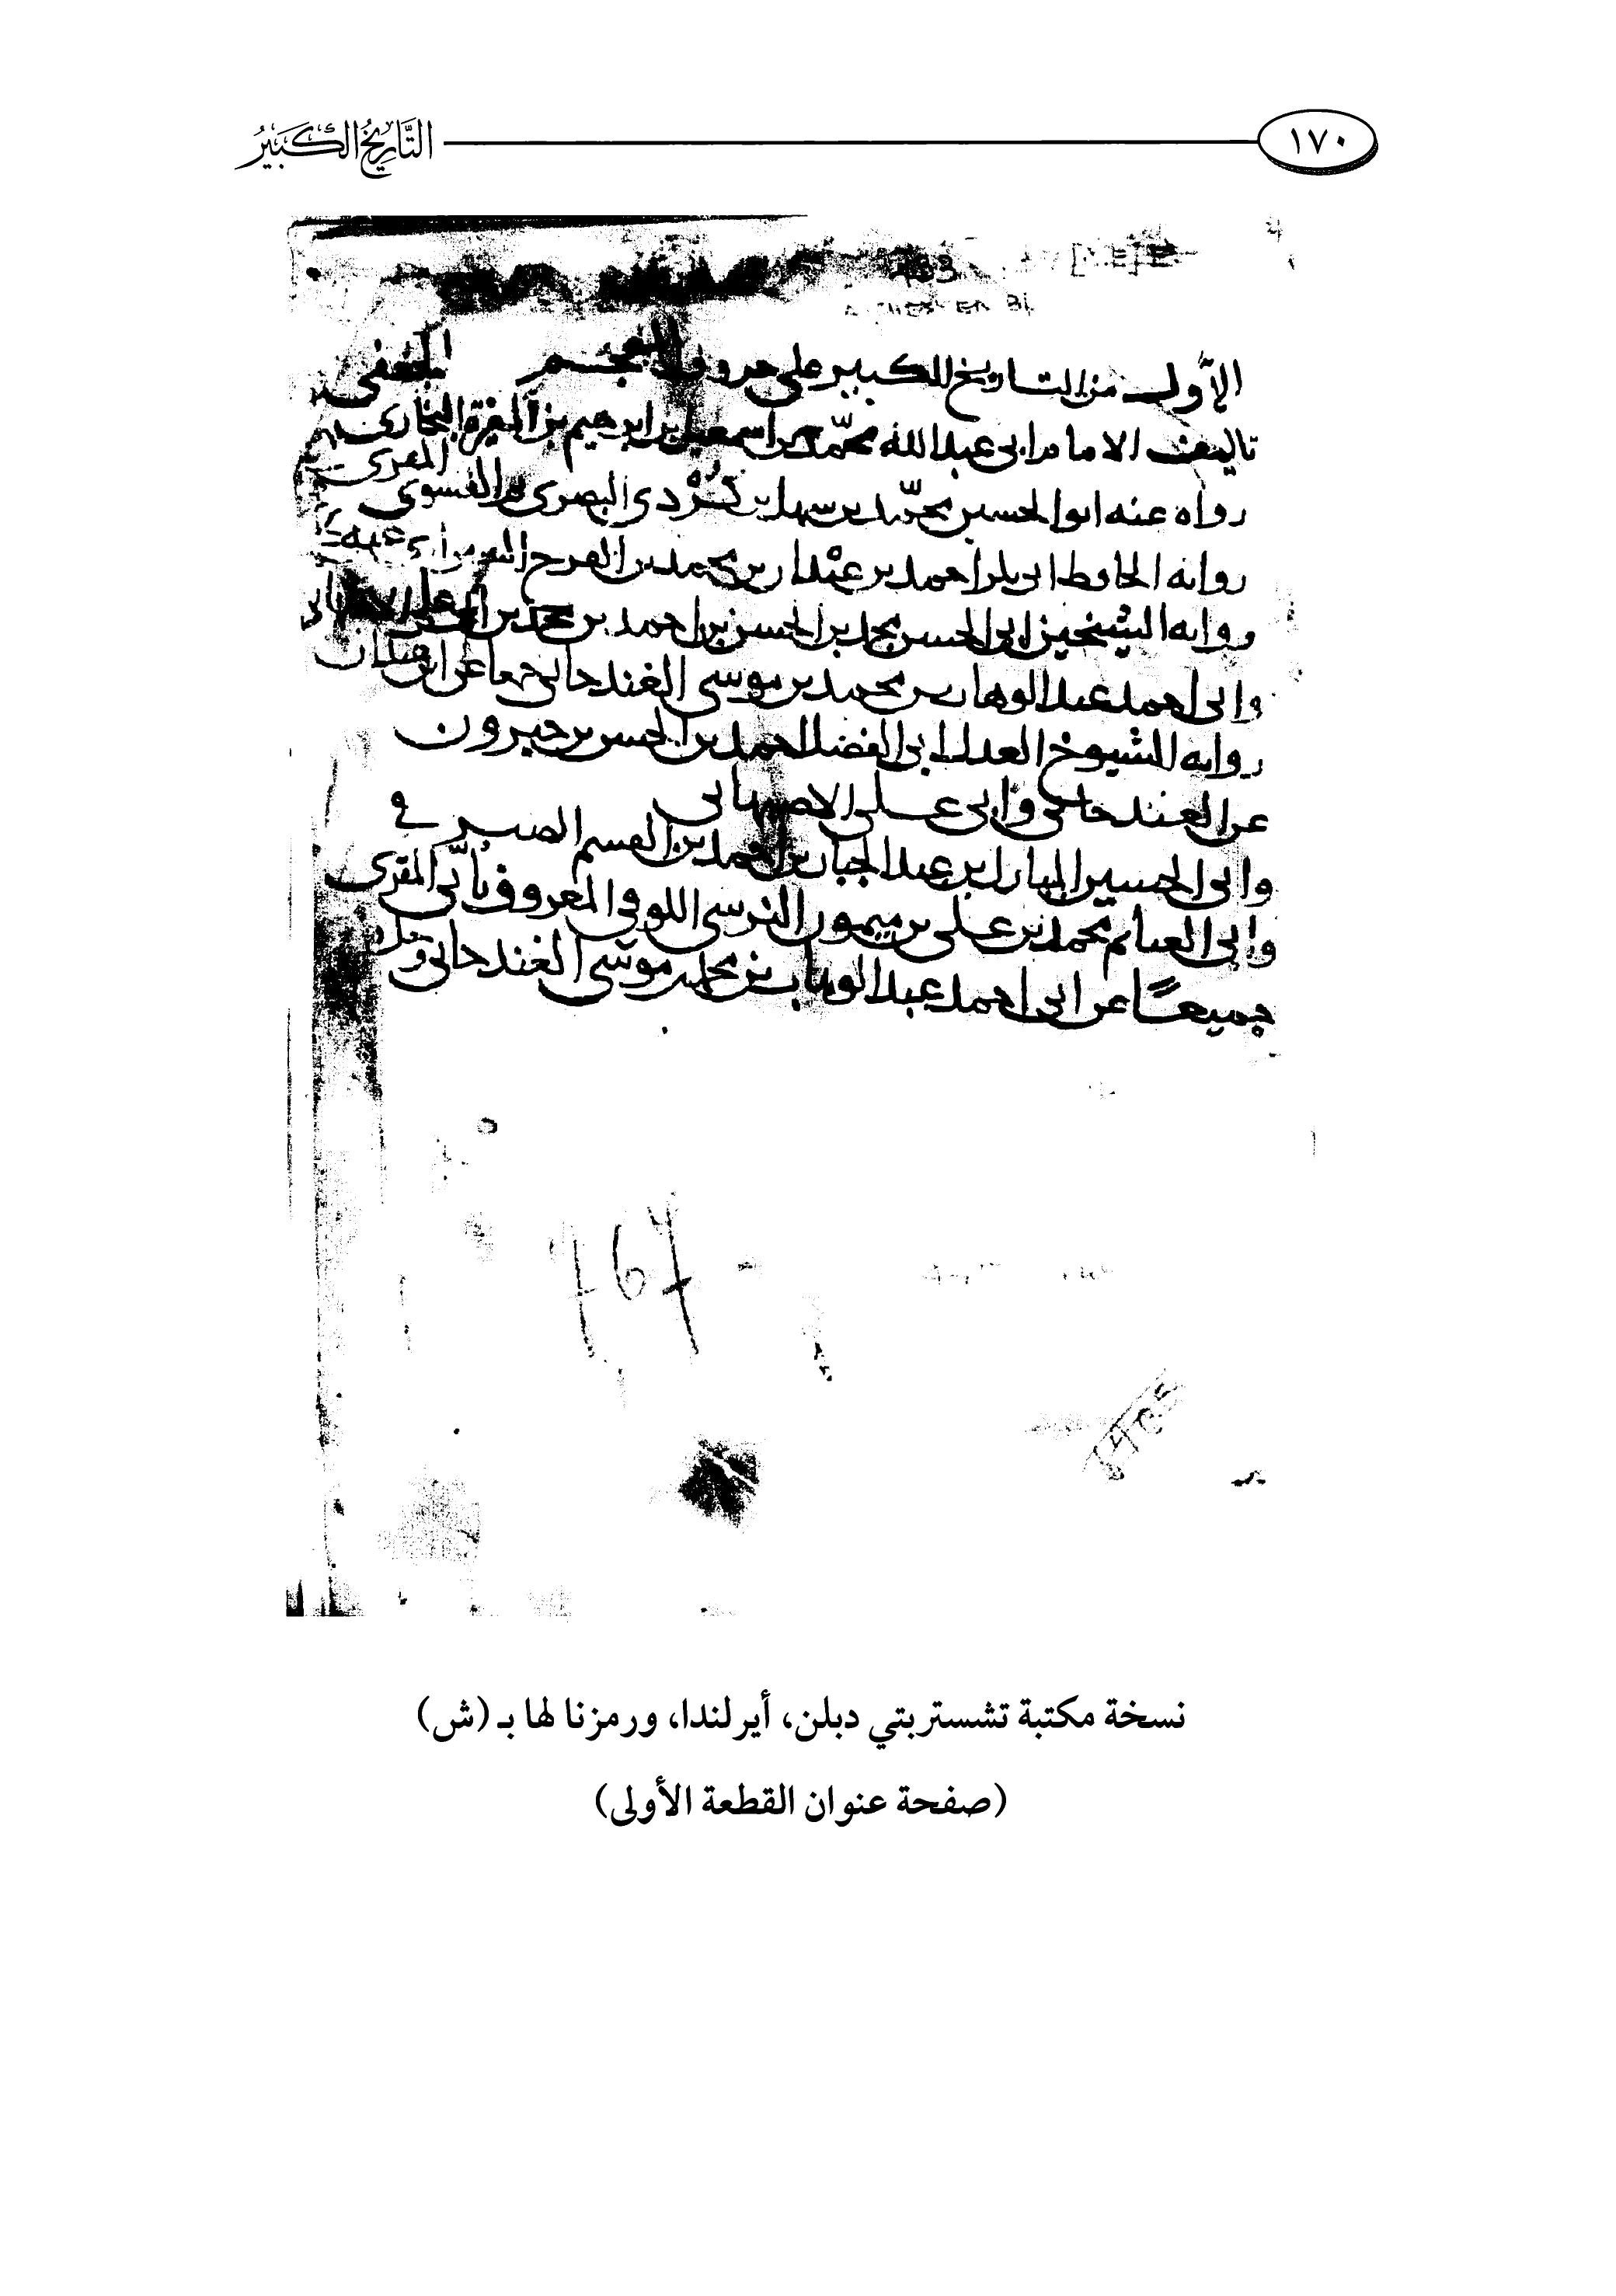 ١٧٠
التَّارِيخُ الكَبِيرُ
الاوّل من التاريخ الكبير على حروف المعجم
تاليف الامام ابى عبد الله محمّد بن اسمعيل بن ابرهيم بن المغيرة البخارى
رواه عنه ابو الحسين محمّد بن سهل بن كُرْدى البصرى المقرى الفسوى
روايه الحافظ ابى بكر احمد بن عبْدان بن محمد بن الفرج عنه
وروايه الشيخين ابى الحسن محمد بن الحسن بن احمد بن محمد بن
وابى احمد عبد الوهاب بن محمد بن موسى الغندجانى جمعا عن ابن عبدان
روايه الشيوخ العدل ابى الفضل احمد بن الحسن بن خيرون
عن الغندجانى وابى على الاصبهانى
وابى الحسين المبارك بن عبد الجبار بن احمد بن القسم الصيرفى
وابى الغنائم محمد بن على بن ميمون النرسى الكوفى المعروف باُبىّ المقرى
جميعًا عن ابى احمد عبد الوهاب بن محمد بن موسى الغندجانى وحده
نسخة مكتبة تشستربتي دبلن، أيرلندا، ورمزنا لها بـ (ش)
(صفحة عنوان القطعة الأولى)